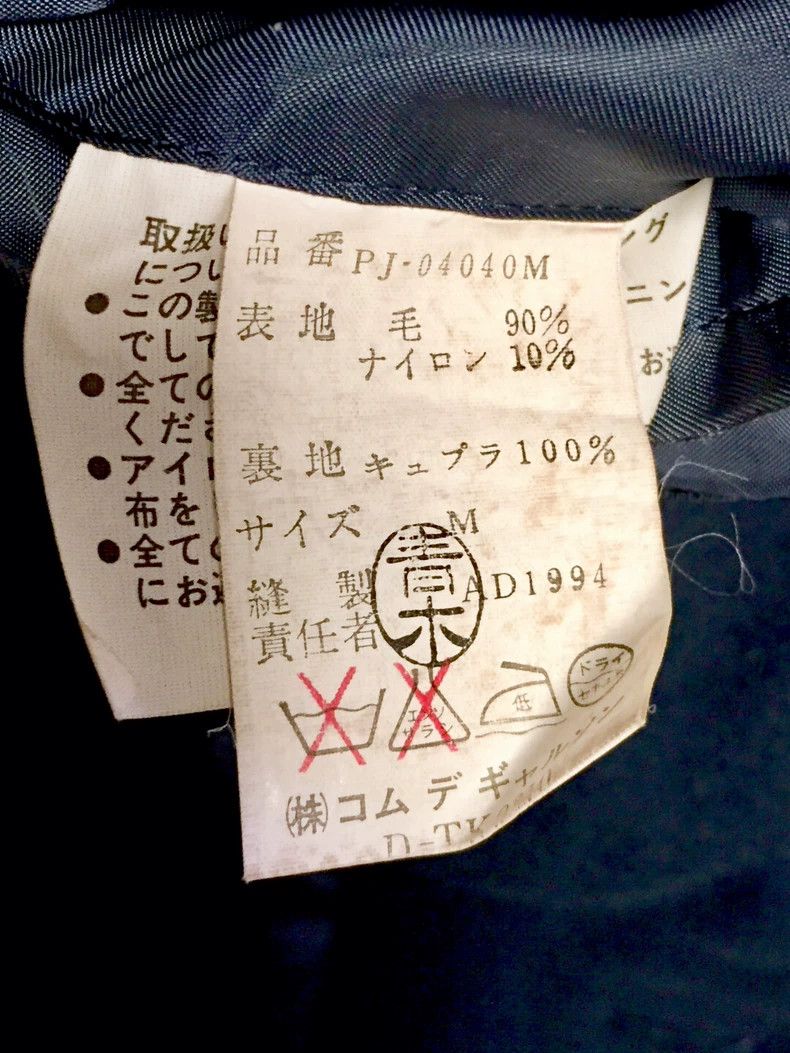 品番 PJ-04040M
表地 毛 90%
ナイロン 10%
裏地 キュプラ 100%
サイズ M
縫製 AD1994
責任者
青木
エンソ
サラシ
低
ドライ
㈱コムデギャルソン
D-TK
取扱い
につい
●この製
でして
●全ての
くださ
●アイロ
布を
●全ての
にお
ング
ニン
お